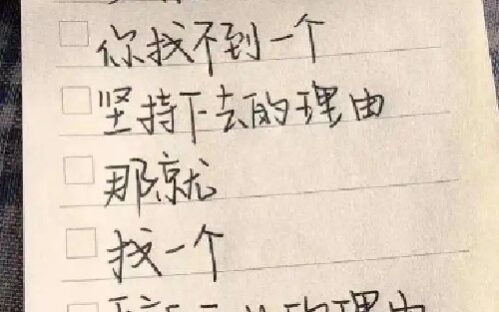 你找不到一个
坚持下去的理由
那就
找一个
的理由